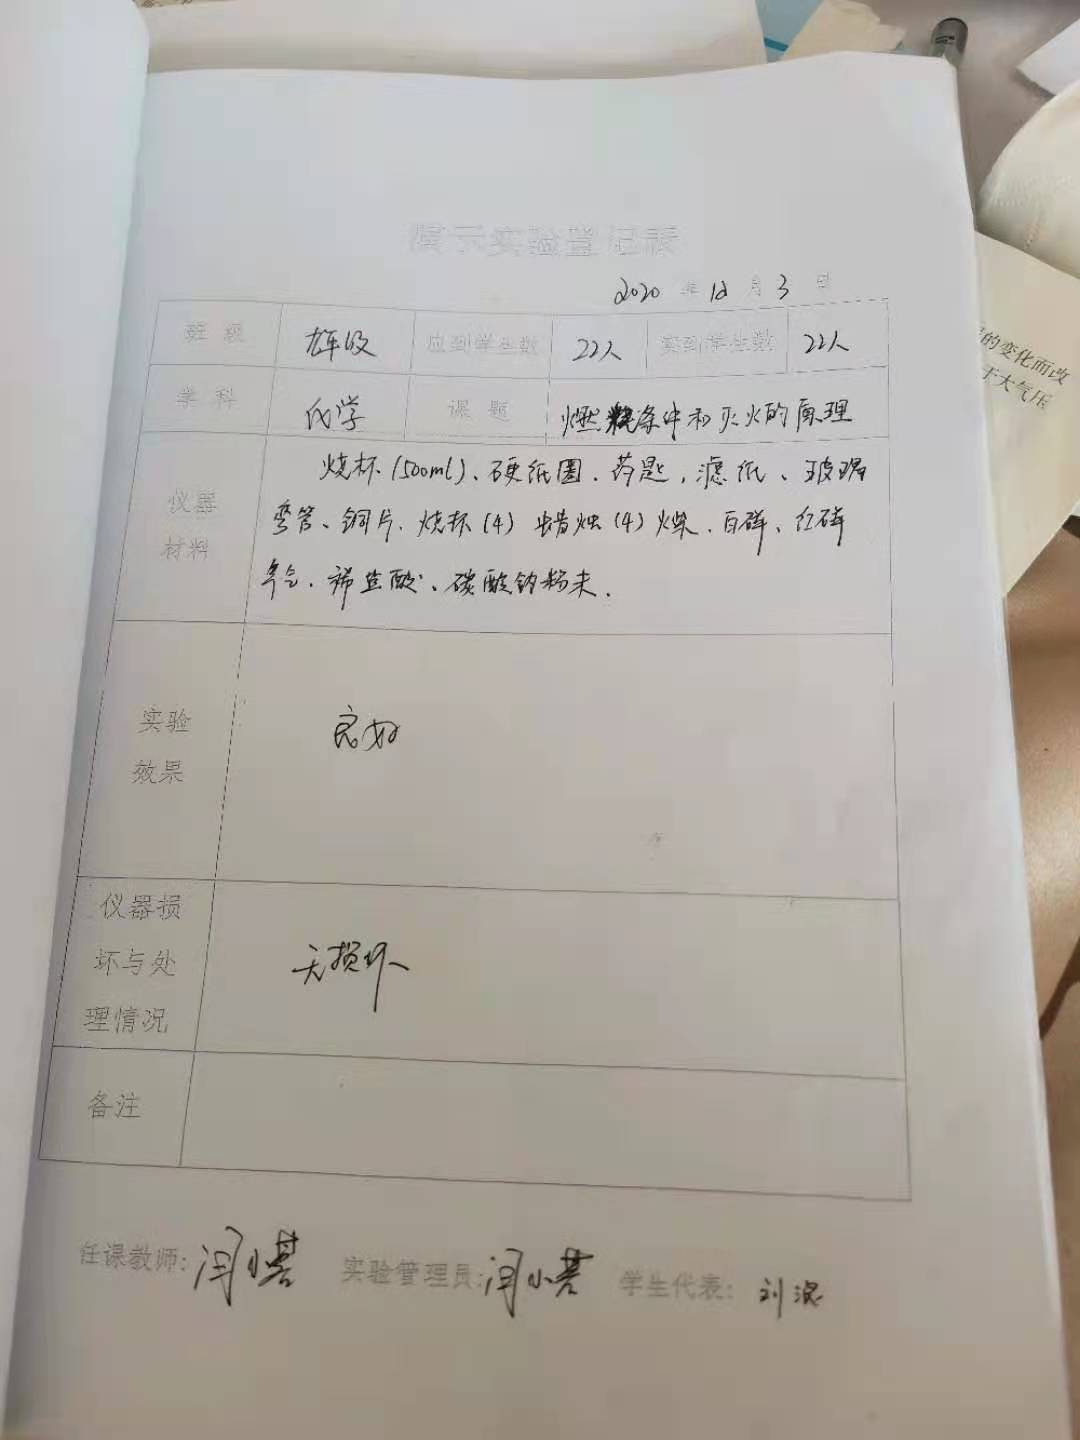 演示实验登记表
2020 年 12 月 3 日
班 级 九年级 应到学生数 22人 实到学生数 22人
学 科 化学 课 题 燃烧条件和灭火的原理
仪器材料 烧杯(500ml)、硬纸圈、药匙,滤纸、玻璃
弯管、铜片、烧杯(4) 蜡烛(4) 火柴、白磷、红磷
稀盐酸、碳酸钠粉末.
实验
效果
良好
仪器损
坏与处
理情况
无损坏
备注
任课教师: 闫小 实验管理员: 闫小 学生代表: 刘
的变化而改
于大气压